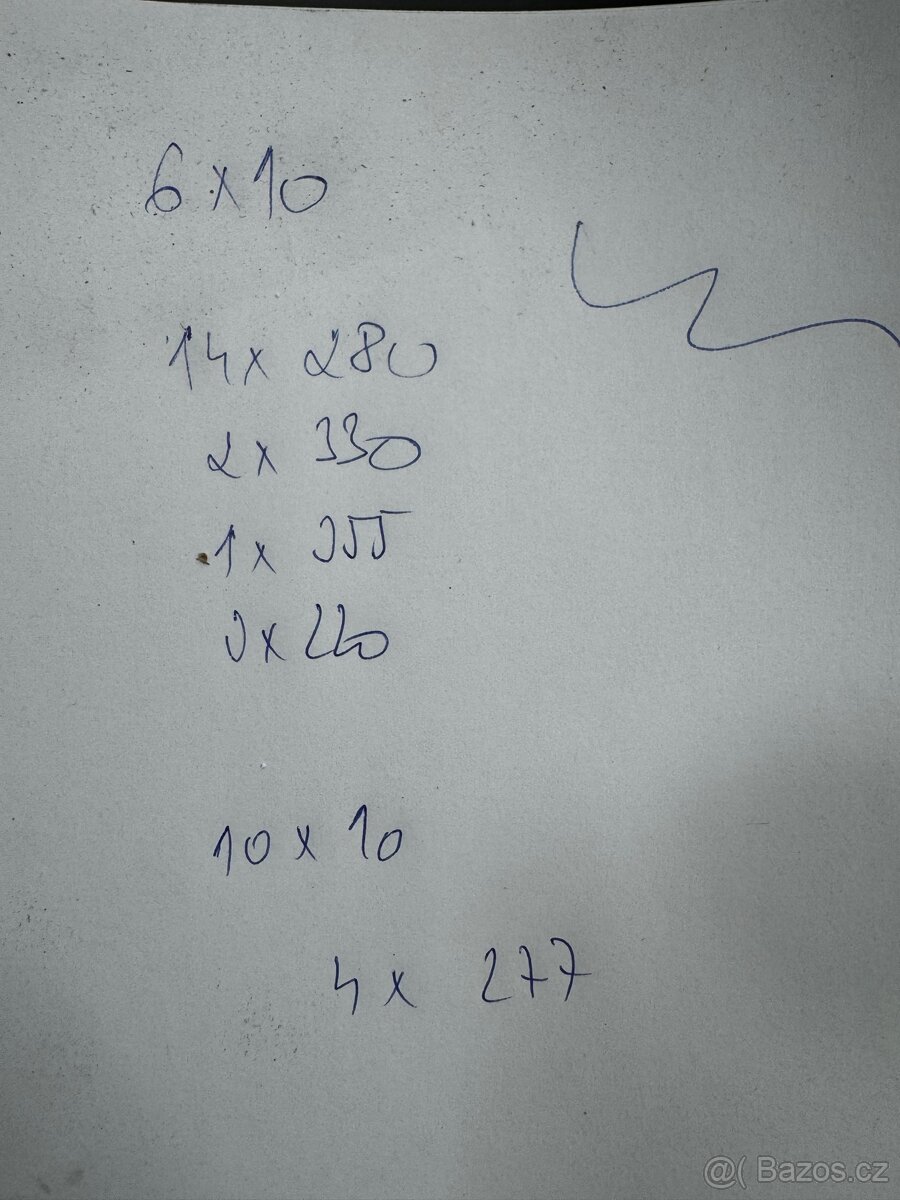 6 x 10
14 x 280
2 x 330
1 x 355
3 x 220
10 x 10
4 x 277
@( Bazos.cz